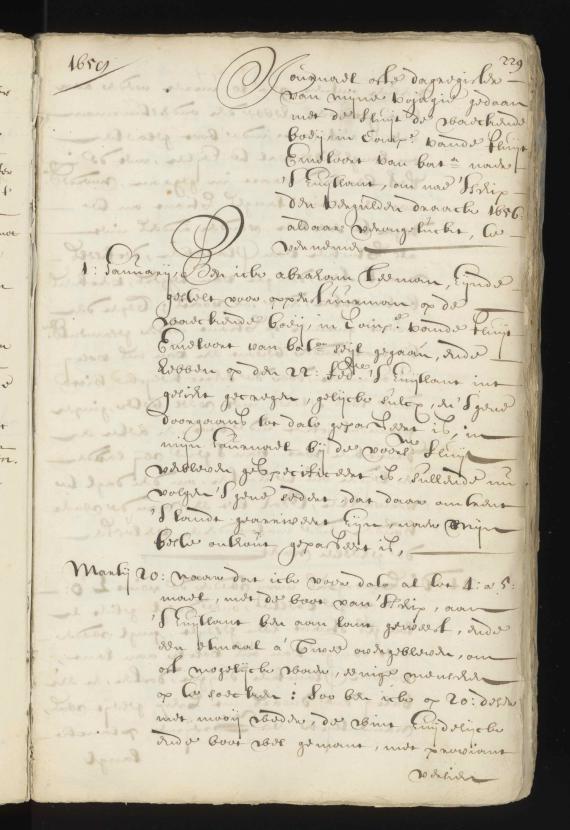 1659
229
Journael ofte dagregister
van mijne vojagie gedaen
met de fluijt de Waeckende
boeij in Comp.e vande fluijt
Emeloort van bat.a naer
't Zuijtlant, om nae 't schip
den vergulden draack 1656
aldaer verongeluckt, te
vernemen
1: Januarij, Ben ick abraham Leeman, zijnde
gestelt voor opperstuurman op de
Waeckende boeij, in Comp.e vande fluijt
Emeloort van bat.a zeijl gegaen, ende
hebben op den 22: feb. 't Zuijtlant int
gesicht gecregen, gelijcke sulcx, en 't gene
doorgaens tot dato gepasseert is, in
mijn Journael bij de voorn. fluijt
verbleven gespecificeert is, sullende nu
volgen 't gene sedert, dat daer omtrent
't landt gearriveert zijn, naer mijn
beste onthout gepasseert is,
Martij 20: naer dat ick voor dato al tot 4: a 5:
mael, met de boot van 't schip, aan
't Zuijtlant ben aan lant geweest, ende
een etmael a twee overgebleven, om
oft mogelijck waer, eenige menschen
op te soecken: soo ben ick op 20: deser
met mooij weder, de wint zuijdelijck
ende boot wel gemant, met proviant
versien